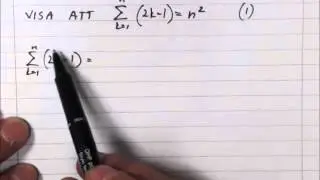 VISA ATT $\sum_{k=1}^{n} (2k-1) = n^2$ (1)
$\sum_{k=1}^{n} (2k-1) =$